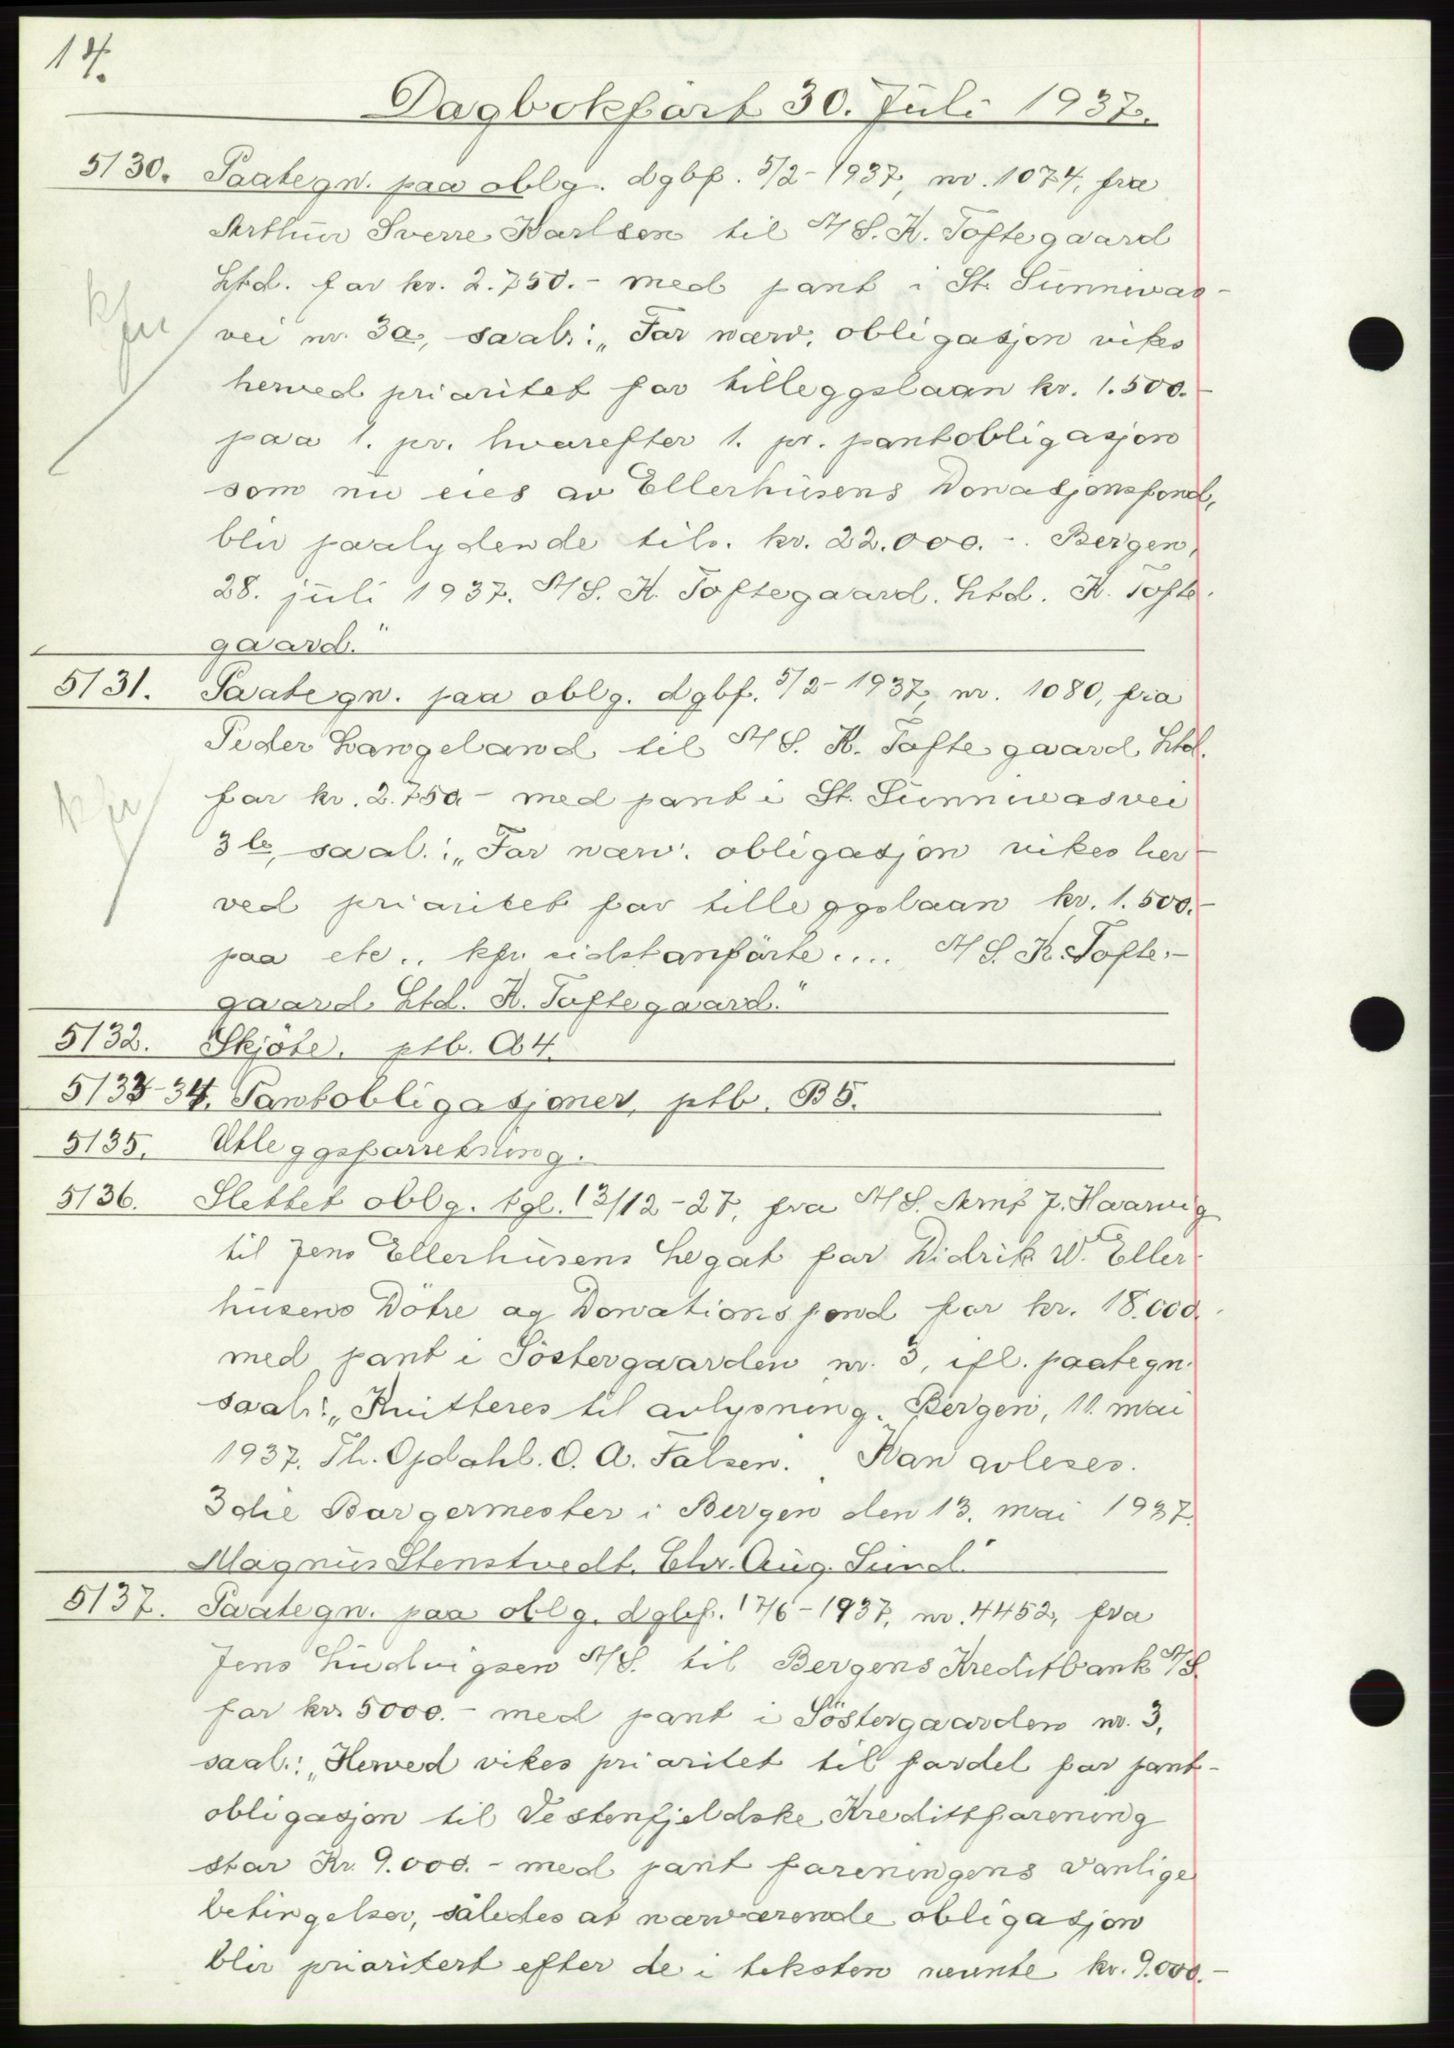 14.
Dagbokført 30. Juli 1937.
5130. Paategn. paa oblg. dgbf. 5/2-1937, nr. 1074, fra
Arthur Sverre Karlsen til A/S. K. Toftegaard
Ltd. for kr. 2.750.- med pant i St. Sunnivas-
vei nr. 3a, saal.: „For nærv. obligasjon vikes
herved prioritet for tilleggslaan kr. 1.500.-
paa 1. pr. hvorefter 1. pr. pantobligasjon
som nu eies av Ellerhusens Donasjonsfond,
blir paalydende tils. kr. 22.000.-. Bergen,
28. juli 1937. A/S. K. Toftegaard. Ltd. K. Tofte-
gaard."
kfr
5131. Paategn. paa oblg. dgbf. 5/2-1937, nr. 1080, fra
Peder Langeland til A/S. K. Toftegaard Ltd.
for kr. 2.750.- med pant i St. Sunnivasvei
3b, saal.: „For nærv. obligasjon vikes her-
ved prioritet for tilleggslaan kr. 1.500.-
paa etc.. kfr. sidstanførte.... A/S. K. Tofte-
gaard Ltd. K. Toftegaard."
kfr
5132. Skjøte, ptb. A4.
5133-34. Pantobligasjoner, ptb. B5.
5135. Utleggsforretning.
5136. Slettet oblg. tgl. 13/12-27, fra A/S. Arnt J. Haarvig
til Jens Ellerhusens Legat for Didrik W. Eller-
husens Døtre og Donationsfond for kr. 18.000.
med pant i Söstergaarden nr. 3, ifl. paategn.
saal.: „Kvitteres til avlysning. Bergen, 11. mai
1937. Th. Opdahl. O. A. Falsen. Kan avleses.
3die Borgermester i Bergen den 13. mai 1937.
Magnus Stenstvedt. Chr. Aug. Sund."
5137. Paategn. paa oblg. dgbf. 17/6-1937, nr. 4452, fra
Jens Ludvigsen A/S. til Bergens Kreditbank A/S.
for kr. 5000.- med pant i Söstergaarden nr. 3,
saal.: „Herved vikes prioritet til fordel for pant-
obligasjon til Vestenfjeldske Kreditforening
stor Kr. 9.000.- med pant foreningens vanlige
betingelser, således at nærværende obligasjon
blir prioritert efter de i teksten nevnte kr. 9.000.-